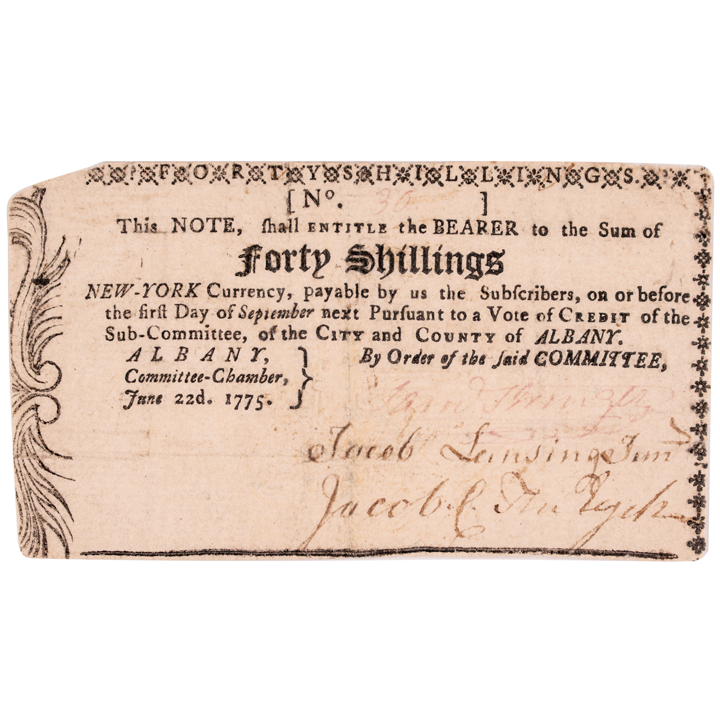 FORTY SHILLINGS.
[ No. 36 ]
This NOTE, ſhall ENTITLE the BEARER to the Sum of
Forty Shillings
NEW-YORK Currency, payable by us the Subſcribers, on or before
the firſt Day of September next Purſuant to a Vote of CREDIT of the
Sub-Committee, of the CITY and COUNTY of ALBANY.
ALBANY, } By Order of the ſaid COMMITTEE,
Committee-Chamber,
June 22d. 1775.
Jacob Lansing Junr
Jacob C. Ten Eyck